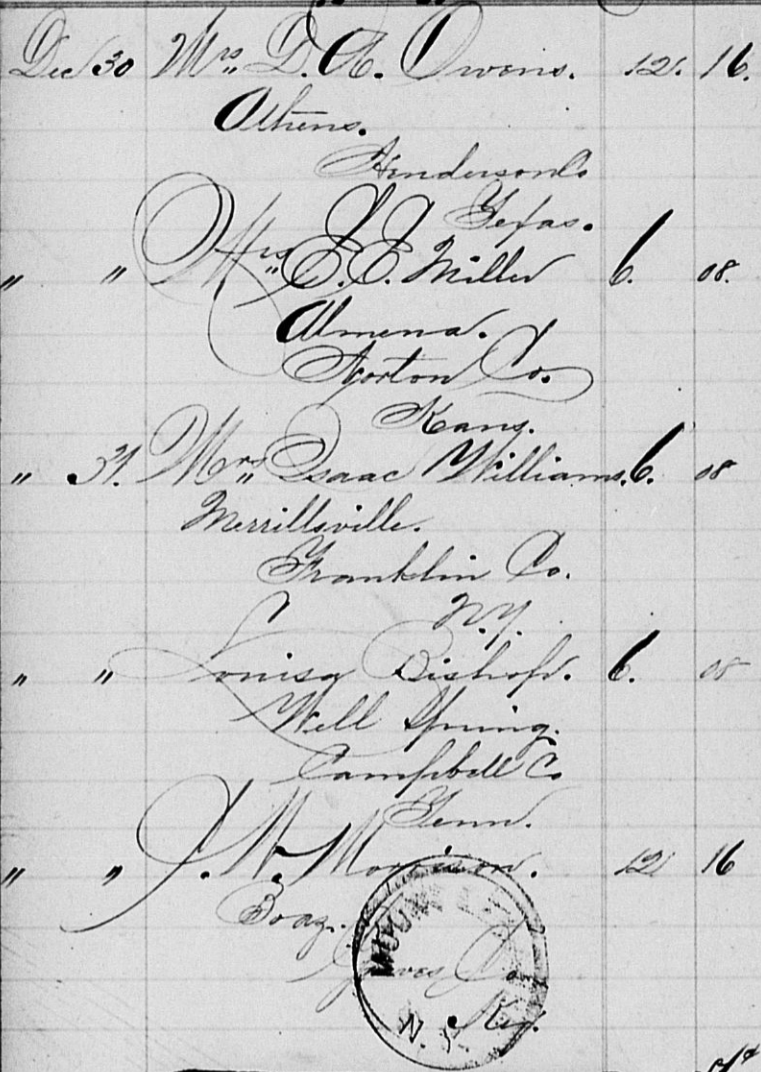 Dec 30 Mrs. D. A. Owens. 12. 16.
Athens.
Henderson Co
Texas.
" " Mrs. E. E. Miller 6. 08.
Almena.
Norton Co.
Kans.
" 31. Mrs. Isaac Williams. 6. 08
Merrillsville.
Franklin Co.
N.Y.
" " Louisa Bishop. 6. 08
Well Spring.
Campbell Co
Tenn.
" " J. W. Morrison. 12 16
Boaz.
Graves Co
Ky.
N.Y.